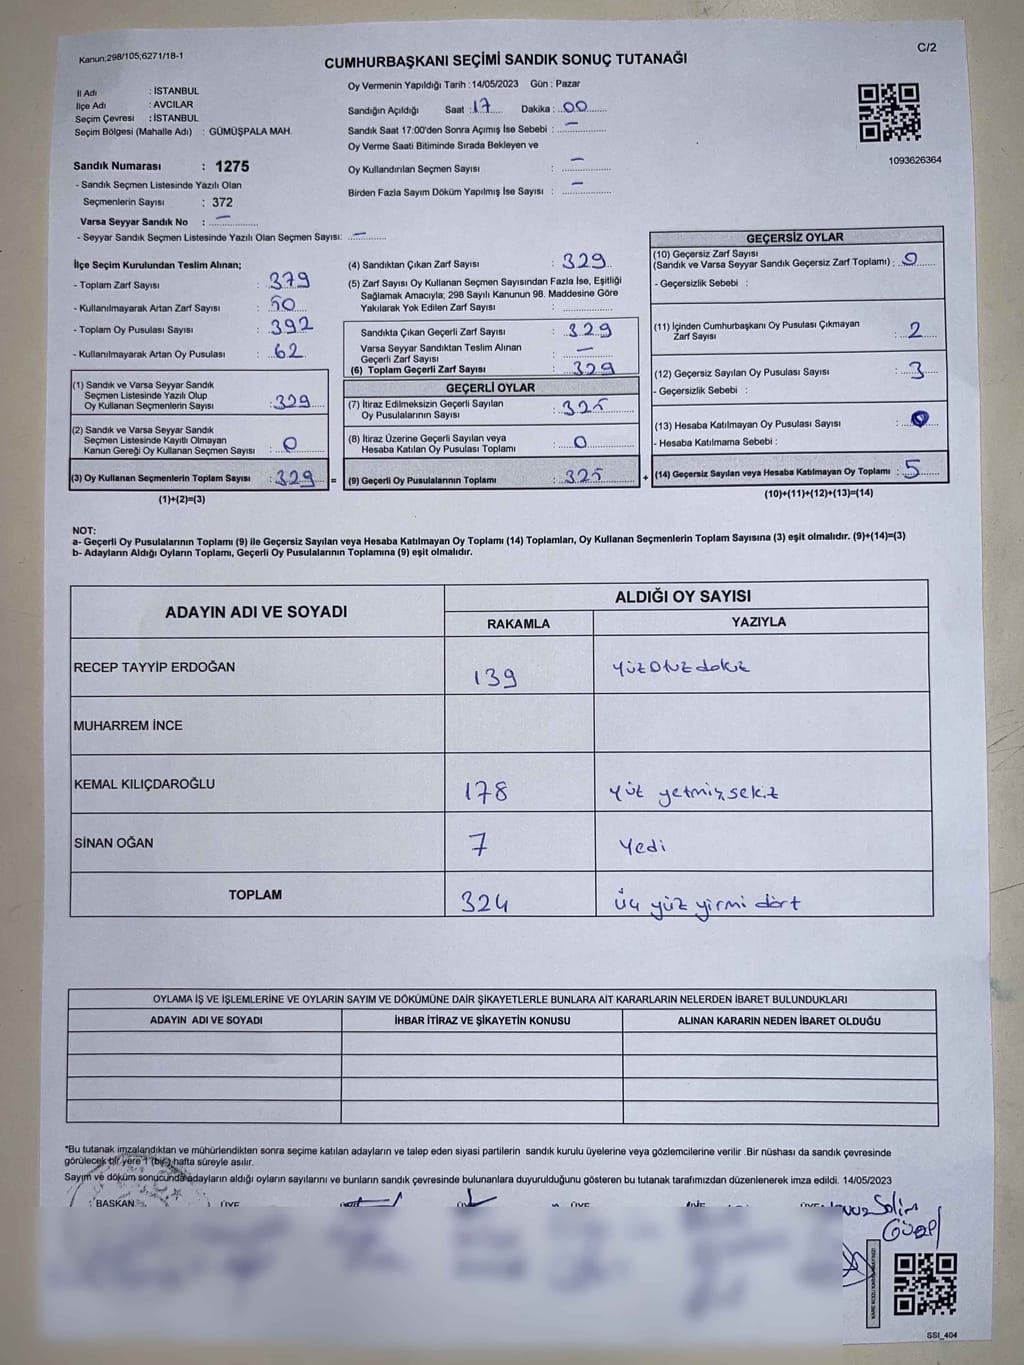 Kanun;298/105;6271/18-1
C/2
CUMHURBAŞKANI SEÇİMİ SANDIK SONUÇ TUTANAĞI
İl Adı : İSTANBUL
İlçe Adı : AVCILAR
Seçim Çevresi : İSTANBUL
Seçim Bölgesi (Mahalle Adı) : GÜMÜŞPALA MAH.
Sandık Numarası : 1275
- Sandık Seçmen Listesinde Yazılı Olan
Seçmenlerin Sayısı : 372
Varsa Seyyar Sandık No : —
- Seyyar Sandık Seçmen Listesinde Yazılı Olan Seçmen Sayısı: —
Oy Vermenin Yapıldığı Tarih : 14/05/2023 Gün : Pazar
Sandığın Açıldığı Saat : 17 Dakika : 00
Sandık Saat 17:00'den Sonra Açımış İse Sebebi : —
Oy Verme Saati Bitiminde Sırada Bekleyen ve
Oy Kullandırılan Seçmen Sayısı : —
Birden Fazla Sayım Döküm Yapılmış İse Sayısı : —
1093626364
İlçe Seçim Kurulundan Teslim Alınan;
- Toplam Zarf Sayısı : 379
- Kullanılmayarak Artan Zarf Sayısı : 50
- Toplam Oy Pusulası Sayısı : 392
- Kullanılmayarak Artan Oy Pusulası : 62
(1) Sandık ve Varsa Seyyar Sandık
Seçmen Listesinde Yazılı Olup
Oy Kullanan Seçmenlerin Sayısı : 329
(2) Sandık ve Varsa Seyyar Sandık
Seçmen Listesinde Kayıtlı Olmayan
Kanun Gereği Oy Kullanan Seçmen Sayısı : 0
(3) Oy Kullanan Seçmenlerin Toplam Sayısı : 329 =
(1)+(2)=(3)
(4) Sandıktan Çıkan Zarf Sayısı : 329
(5) Zarf Sayısı Oy Kullanan Seçmen Sayısından Fazla İse, Eşitliği
Sağlamak Amacıyla; 298 Sayılı Kanunun 98. Maddesine Göre
Yakılarak Yok Edilen Zarf Sayısı :
Sandıkta Çıkan Geçerli Zarf Sayısı : 329
Varsa Seyyar Sandıktan Teslim Alınan
Geçerli Zarf Sayısı : —
(6) Toplam Geçerli Zarf Sayısı : 329
GEÇERLİ OYLAR
(7) İtiraz Edilmeksizin Geçerli Sayılan
Oy Pusulalarının Sayısı : 325
(8) İtiraz Üzerine Geçerli Sayılan veya
Hesaba Katılan Oy Pusulası Toplamı : 0
(9) Geçerli Oy Pusulalarının Toplamı : 325 +
GEÇERSİZ OYLAR
(10) Geçersiz Zarf Sayısı
(Sandık ve Varsa Seyyar Sandık Geçersiz Zarf Toplamı) : 0
- Geçersizlik Sebebi :
(11) İçinden Cumhurbaşkanı Oy Pusulası Çıkmayan
Zarf Sayısı : 2
(12) Geçersiz Sayılan Oy Pusulası Sayısı : 3
- Geçersizlik Sebebi :
(13) Hesaba Katılmayan Oy Pusulası Sayısı : 0
- Hesaba Katılmama Sebebi :
(14) Geçersiz Sayılan veya Hesaba Katılmayan Oy Toplamı : 5
(10)+(11)+(12)+(13)=(14)
NOT:
a- Geçerli Oy Pusulalarının Toplamı (9) ile Geçersiz Sayılan veya Hesaba Katılmayan Oy Toplamı (14) Toplamları, Oy Kullanan Seçmenlerin Toplam Sayısına (3) eşit olmalıdır. (9)+(14)=(3)
b- Adayların Aldığı Oyların Toplamı, Geçerli Oy Pusulalarının Toplamına (9) eşit olmalıdır.
ADAYIN ADI VE SOYADI
ALDIĞI OY SAYISI
RAKAMLA YAZIYLA
RECEP TAYYİP ERDOĞAN 139 yüz otuz dokuz
MUHARREM İNCE
KEMAL KILIÇDAROĞLU 178 yüz yetmiş sekiz
SİNAN OĞAN 7 yedi
TOPLAM 324 üç yüz yirmi dört
OYLAMA İŞ VE İŞLEMLERİNE VE OYLARIN SAYIM VE DÖKÜMÜNE DAİR ŞİKAYETLERLE BUNLARA AİT KARARLARIN NELERDEN İBARET BULUNDUKLARI
ADAYIN ADI VE SOYADI İHBAR İTİRAZ VE ŞİKAYETİN KONUSU ALINAN KARARIN NEDEN İBARET OLDUĞU
*Bu tutanak imzalandıktan ve mühürlendikten sonra seçime katılan adayların ve talep eden siyasi partilerin sandık kurulu üyelerine veya gözlemcilerine verilir .Bir nüshası da sandık çevresinde
görülecek bir yere 1 (bir) hafta süreyle asılır.
Sayım ve döküm sonucunda adayların aldığı oyların sayılarını ve bunların sandık çevresinde bulunanlara duyurulduğunu gösteren bu tutanak tarafımızdan düzenlenerek imza edildi. 14/05/2023
BAŞKAN ÜYE ÜYE ÜYE ÜYE ÜYE
Selim
Güzel
SSI_404